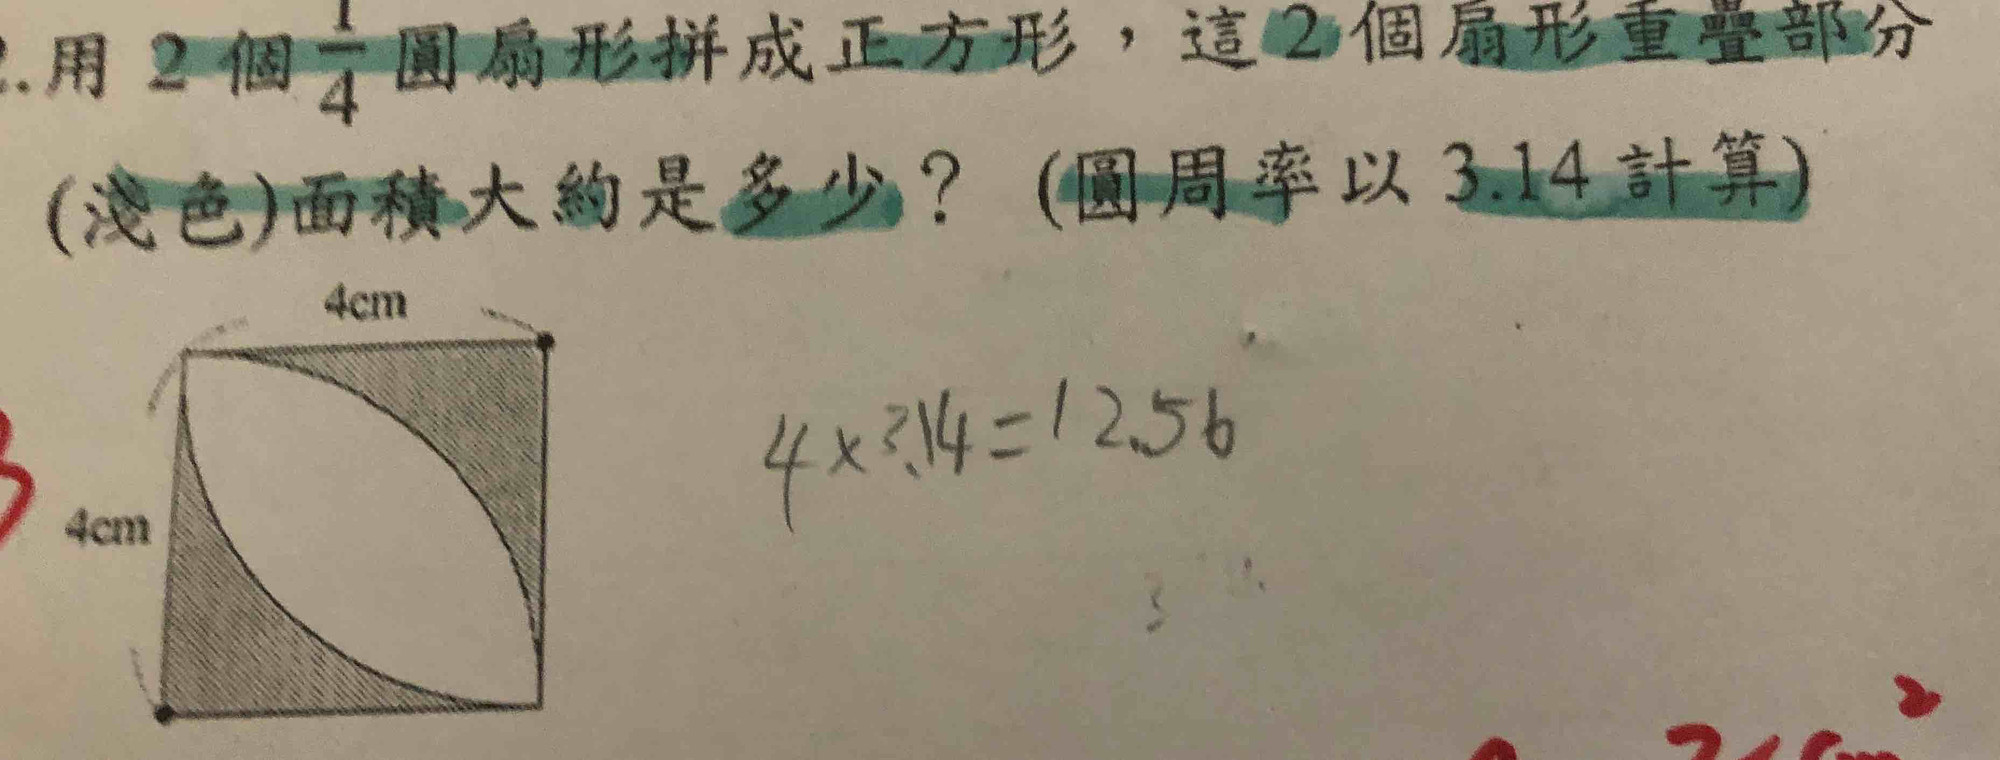 .用 2 個 1/4 圓扇形拼成正方形，這2個扇形重疊部分
(淺色)面積大約是多少？(圓周率以 3.14 計算)
4cm
4×3.14=12.56
4cm